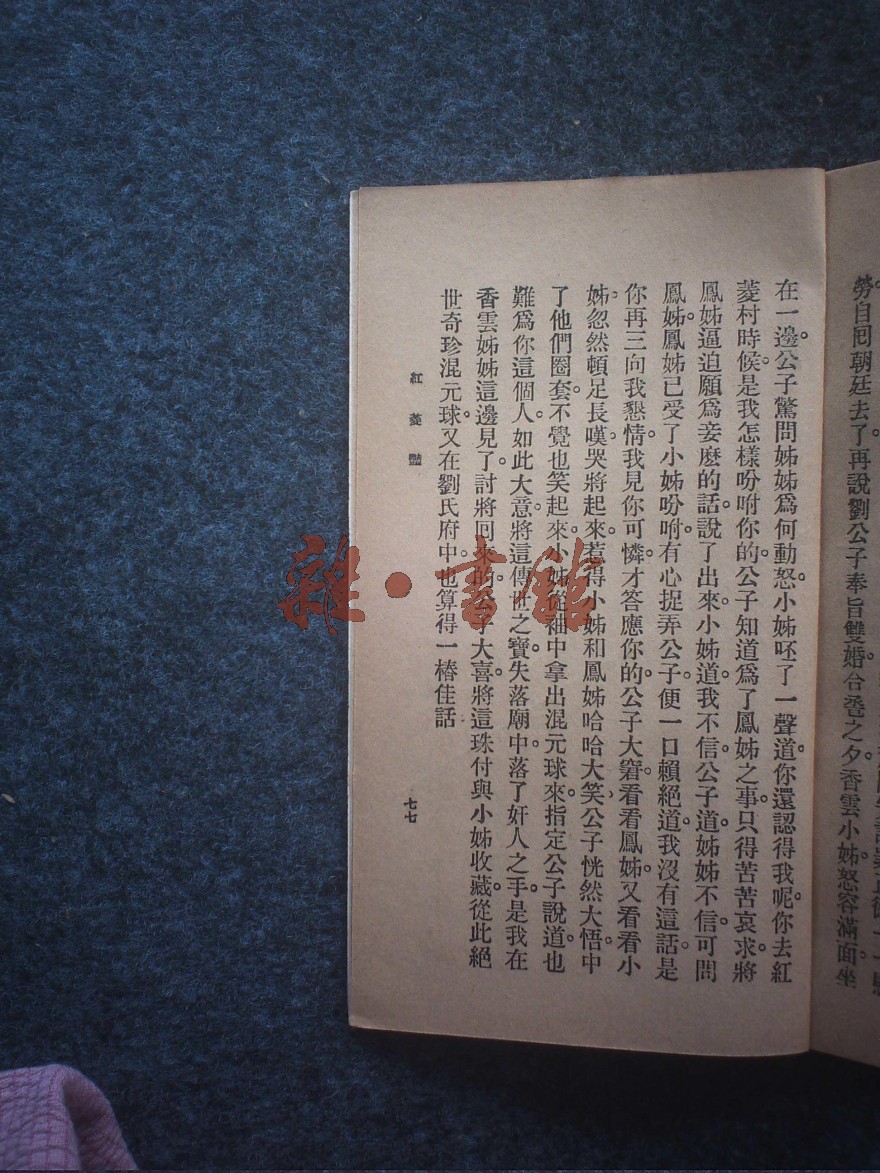 勞自囘朝廷去了再說劉公子奉旨雙婚合巹之夕。香雲小姊。怒容滿面。坐
在一邊。公子驚問姊姊爲何動怒。小姊呸了一聲道。你還認得我呢。你去紅
菱村時候。是我怎樣吩咐你的。公子知道爲了鳳姊之事。只得苦苦哀求。將
鳳姊逼迫願爲妾麽的話。說了出來。小姊道。我不信。公子道。姊姊不信。可問
鳳姊。鳳姊已受了小姊吩咐。有心捉弄公子。便一口賴絕道。我沒有這話。是
你再三向我懇情。我見你可憐。才答應你的。公子大窘。看看鳳姊。又看看小
姊。忽然頓足長嘆。哭將起來。惹得小姊和鳳姊哈哈大笑、公子恍然大悟。中
了他們圈套。不覺也笑起來。小姊從袖中拿出混元球來。指定公子說道。也
難爲你這個人。如此大意。將這傳世之寶。失落廟中。落了奸人之手。是我在
香雲姊姊這邊見了。討將回來的。公子大喜。將這珠付與小姊收藏。從此絕
世奇珍混元球。又在劉氏府中。也算得一樁佳話
紅菱豔
七七
雜·書館